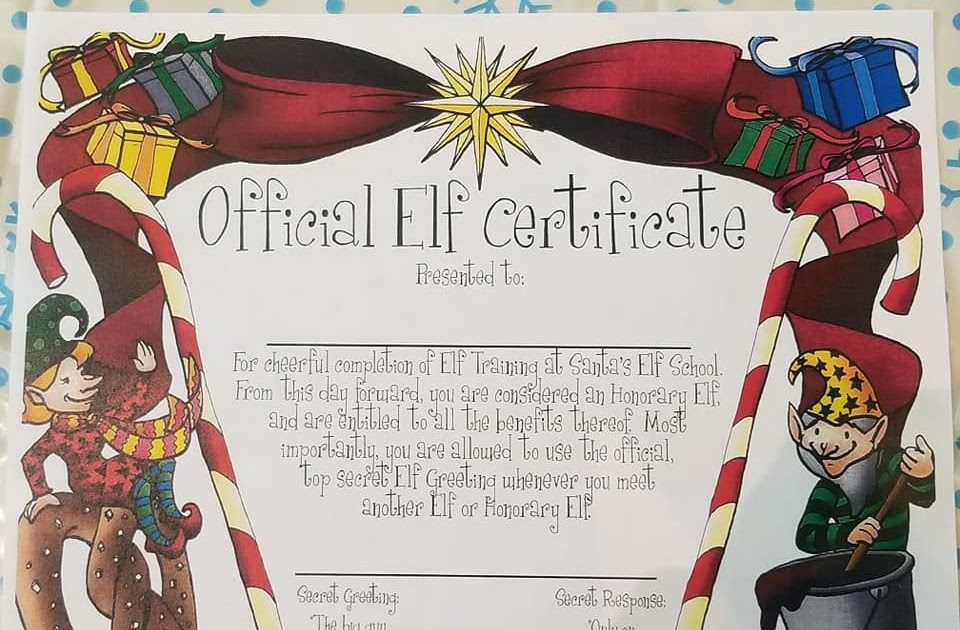 Official Elf Certificate
Presented to:
For cheerful completion of Elf Training at Santa's Elf School.
From this day forward, you are considered an Honorary Elf,
and are entitled to all the benefits thereof. Most
importantly, you are allowed to use the official,
top secret Elf Greeting whenever you meet
another Elf or Honorary Elf.
Secret Greeting:
Secret Response:
"The big guy
"Only on